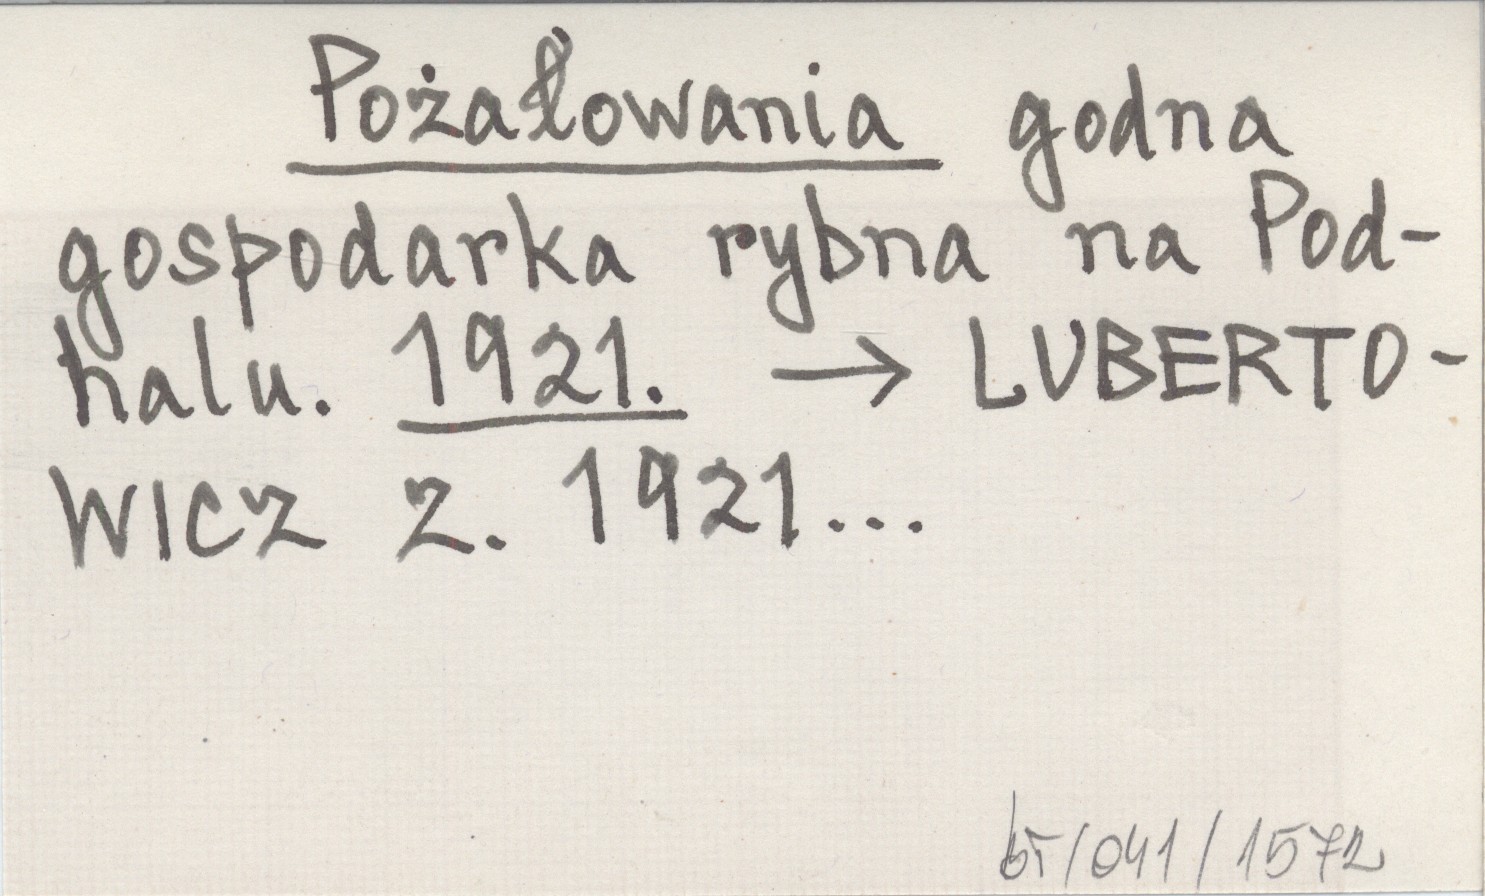 Pożałowania godna
gospodarka rybna na Pod-
halu. 1921. → LUBERTO-
WICZ Z. 1921...
br/041/1572